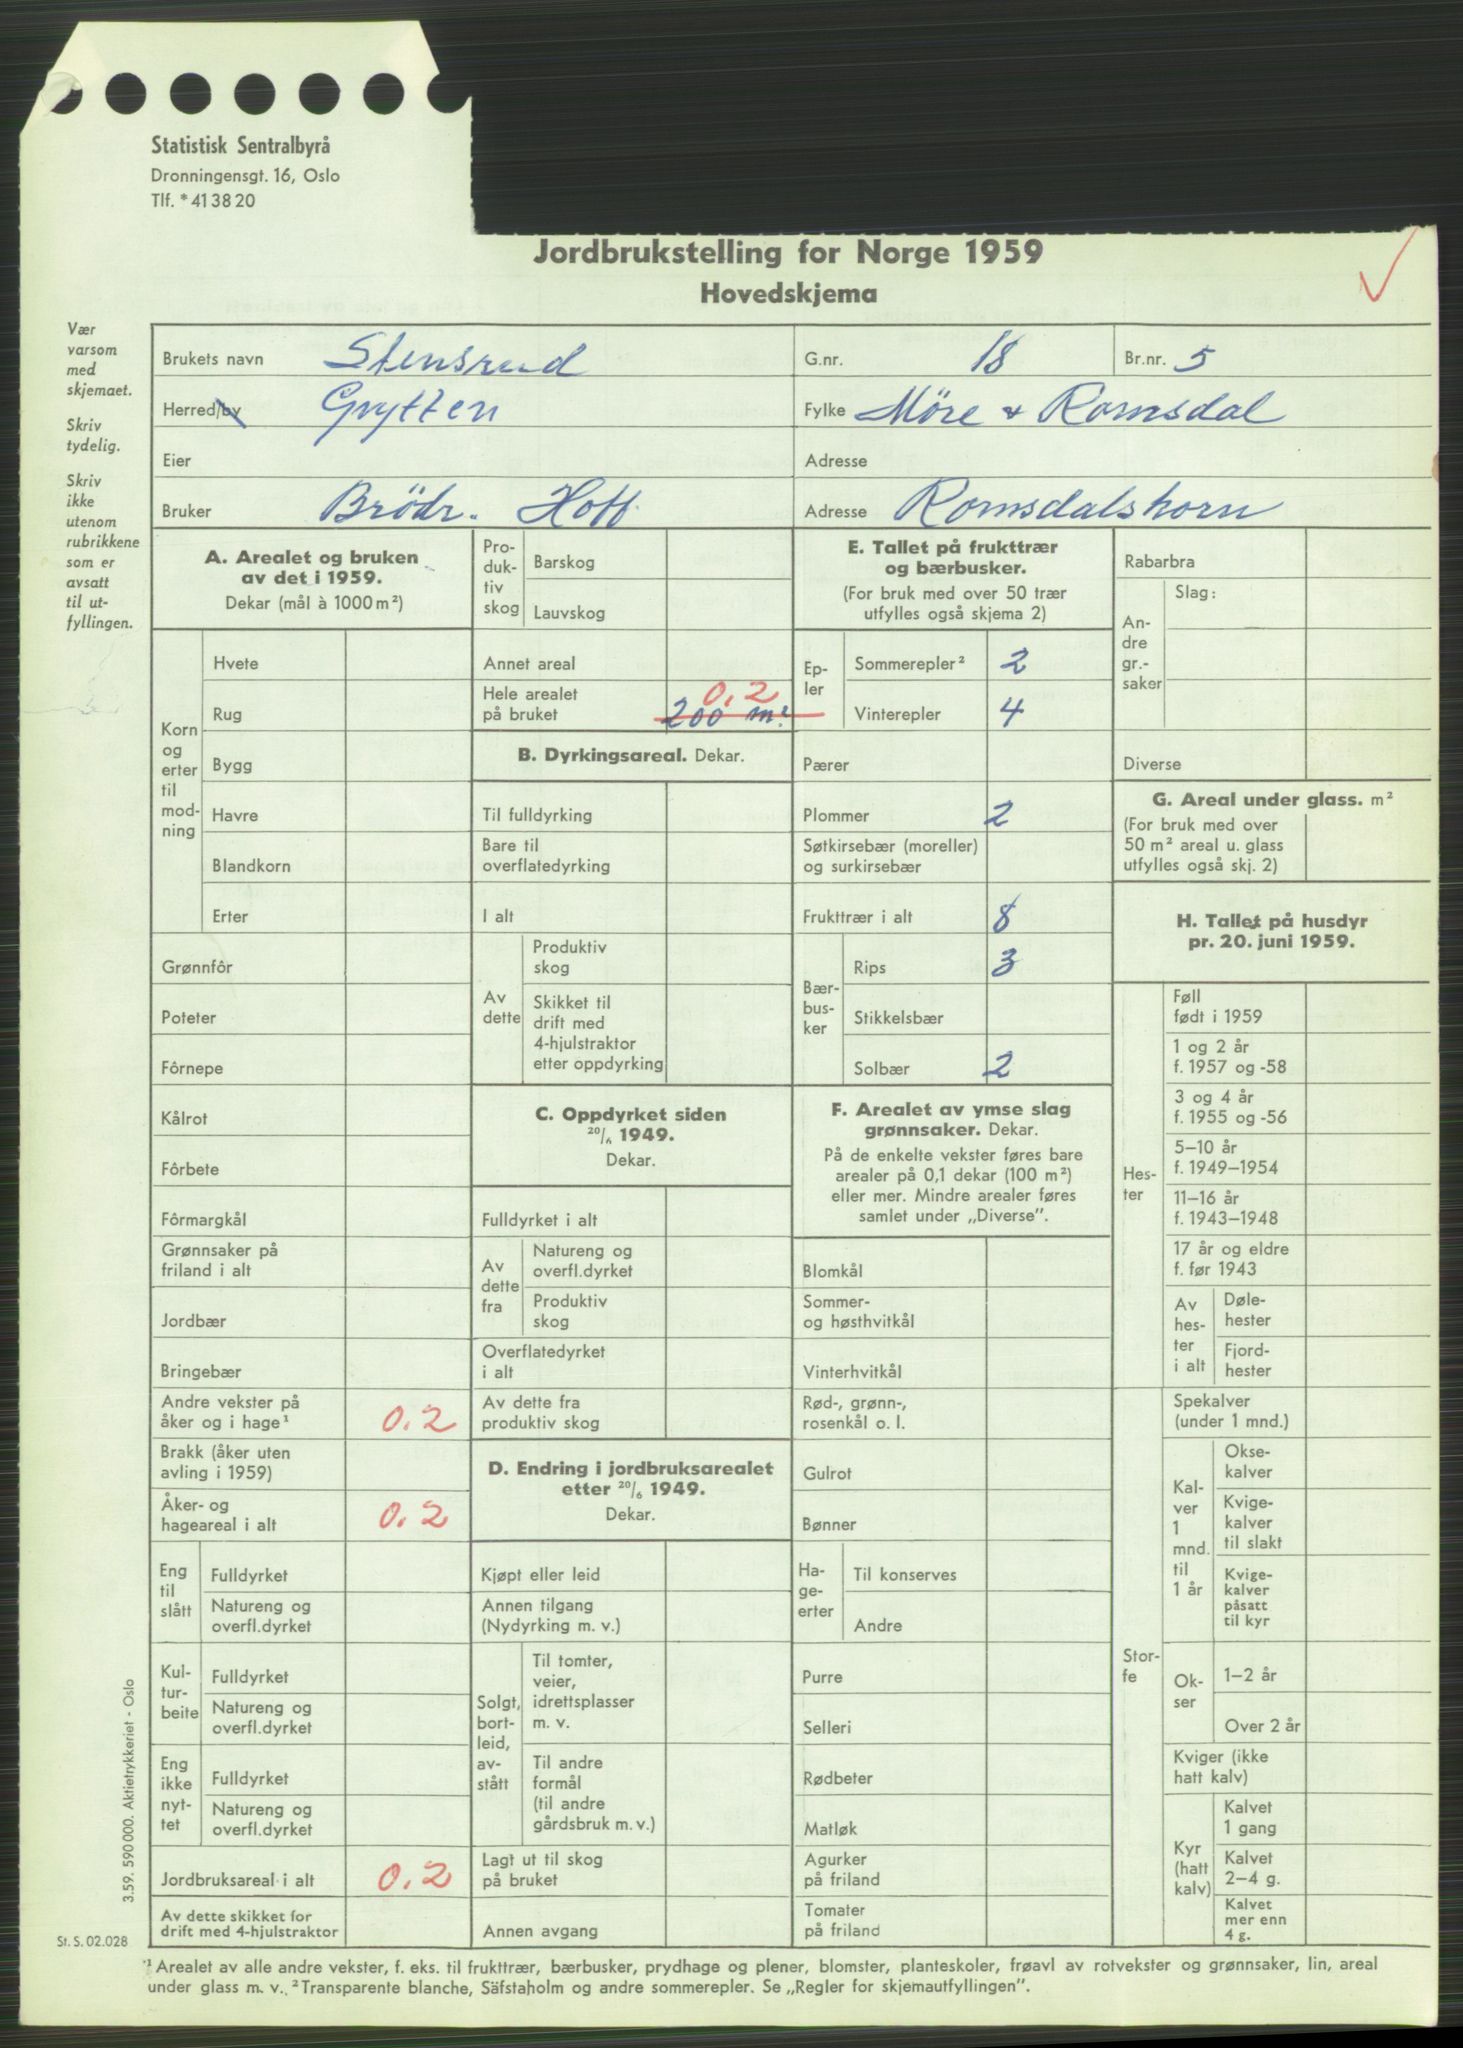 Statistisk Sentralbyrå
Dronningensgt. 16, Oslo
Tlf. * 41 38 20
Jordbrukstelling for Norge 1959
Hovedskjema
Vær
varsom
med
skjemaet.
Skriv
tydelig.
Skriv
ikke
utenom
rubrikkene
som er
avsatt
til ut-
fyllingen.
Brukets navn Stensrud G.nr. 18 Br.nr. 5
Herred/by Grytten Fylke Möre & Romsdal
Eier Adresse
Bruker Brödr. Hoff Adresse Romsdalshorn
A. Arealet og bruken
av det i 1959.
Dekar (mål à 1000 m²)
Korn
og
erter
til
mod-
ning
Hvete
Rug
Bygg
Havre
Blandkorn
Erter
Grønnfôr
Poteter
Fôrnepe
Kålrot
Fôrbete
Fôrmargkål
Grønnsaker på
friland i alt
Jordbær
Bringebær
Andre vekster på
åker og i hage¹ 0.2
Brakk (åker uten
avling i 1959)
Åker- og
hageareal i alt 0.2
Eng
til
slått
Fulldyrket
Natureng og
overfl.dyrket
Kul-
tur-
beite
Fulldyrket
Natureng og
overfl.dyrket
Eng
ikke
nyt-
tet
Fulldyrket
Natureng og
overfl.dyrket
Jordbruksareal i alt 0.2
Av dette skikket for
drift med 4-hjulstraktor
Pro-
duk-
tiv
skog
Barskog
Lauvskog
Annet areal
Hele arealet 0.2
på bruket 200 m²
B. Dyrkingsareal. Dekar.
Til fulldyrking
Bare til
overflatedyrking
I alt
Av
dette
Produktiv
skog
Skikket til
drift med
4-hjulstraktor
etter oppdyrking
C. Oppdyrket siden
20/6 1949.
Dekar.
Fulldyrket i alt
Av
dette
fra
Natureng og
overfl.dyrket
Produktiv
skog
Overflatedyrket
i alt
Av dette fra
produktiv skog
D. Endring i jordbruksarealet
etter 20/6 1949.
Dekar.
Kjøpt eller leid
Annen tilgang
(Nydyrking m. v.)
Solgt,
bort-
leid,
av-
stått
Til tomter,
veier,
idrettsplasser
m. v.
Til andre
formål
(til andre
gårdsbruk m. v.)
Lagt ut til skog
på bruket
Annen avgang
E. Tallet på frukttrær
og bærbusker.
(For bruk med over 50 trær
utfylles også skjema 2)
Ep-
ler
Sommerepler² 2
Vinterepler 4
Pærer
Plommer 2
Søtkirsebær (moreller)
og surkirsebær
Frukttrær i alt 8
Bær-
bus-
ker
Rips 3
Stikkelsbær
Solbær 2
F. Arealet av ymse slag
grønnsaker. Dekar.
På de enkelte vekster føres bare
arealer på 0,1 dekar (100 m²)
eller mer. Mindre arealer føres
samlet under „Diverse”.
Blomkål
Sommer-
og høsthvitkål
Vinterhvitkål
Rød-, grønn-,
rosenkål o. l.
Gulrot
Bønner
Ha-
ge-
erter
Til konserves
Andre
Purre
Selleri
Rødbeter
Matløk
Agurker
på friland
Tomater
på friland
Rabarbra
An-
dre
gr.-
saker
Slag:
Diverse
G. Areal under glass. m²
(For bruk med over
50 m² areal u. glass
utfylles også skj. 2)
H. Tallet på husdyr
pr. 20. juni 1959.
Hes-
ter
Føll
født i 1959
1 og 2 år
f. 1957 og -58
3 og 4 år
f. 1955 og -56
5–10 år
f. 1949–1954
11–16 år
f. 1943–1948
17 år og eldre
f. før 1943
Av
hes-
ter
i alt
Døle-
hester
Fjord-
hester
Stor-
fe
Spekalver
(under 1 mnd.)
Kal-
ver
1
mnd.
til
1 år
Okse-
kalver
Kvige-
kalver
til slakt
Kvige-
kalver
påsatt
til kyr
Ok-
ser
1–2 år
Over 2 år
Kviger (ikke
hatt kalv)
Kyr
(hatt
kalv)
Kalvet
1 gang
Kalvet
2–4 g.
Kalvet
mer enn
4 g.
3.59. 590 000. Aktietrykkeriet - Oslo
St. S. 02.028
¹ Arealet av alle andre vekster, f. eks. til frukttrær, bærbusker, prydhage og plener, blomster, planteskoler, frøavl av rotvekster og grønnsaker, lin, areal
under glass m. v. ² Transparente blanche, Säfstaholm og andre sommerepler. Se „Regler for skjemautfyllingen”.